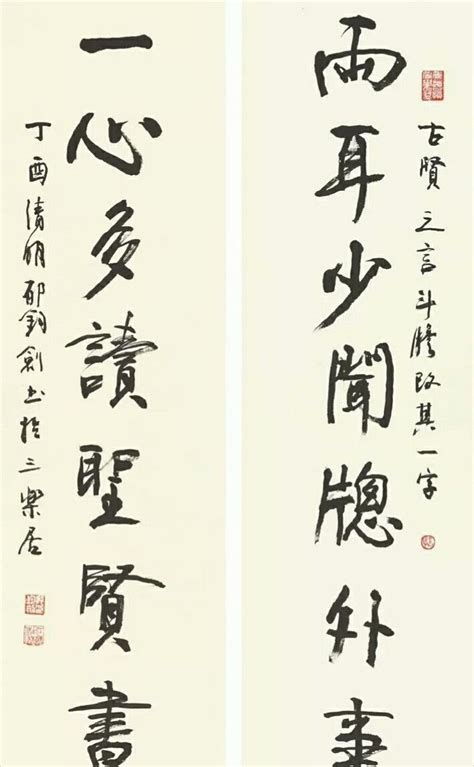 古賢之言斗膽改其一字
兩耳少聞牕外事
一心多讀聖賢書
丁酉清明郁鈞劍書於三樂居